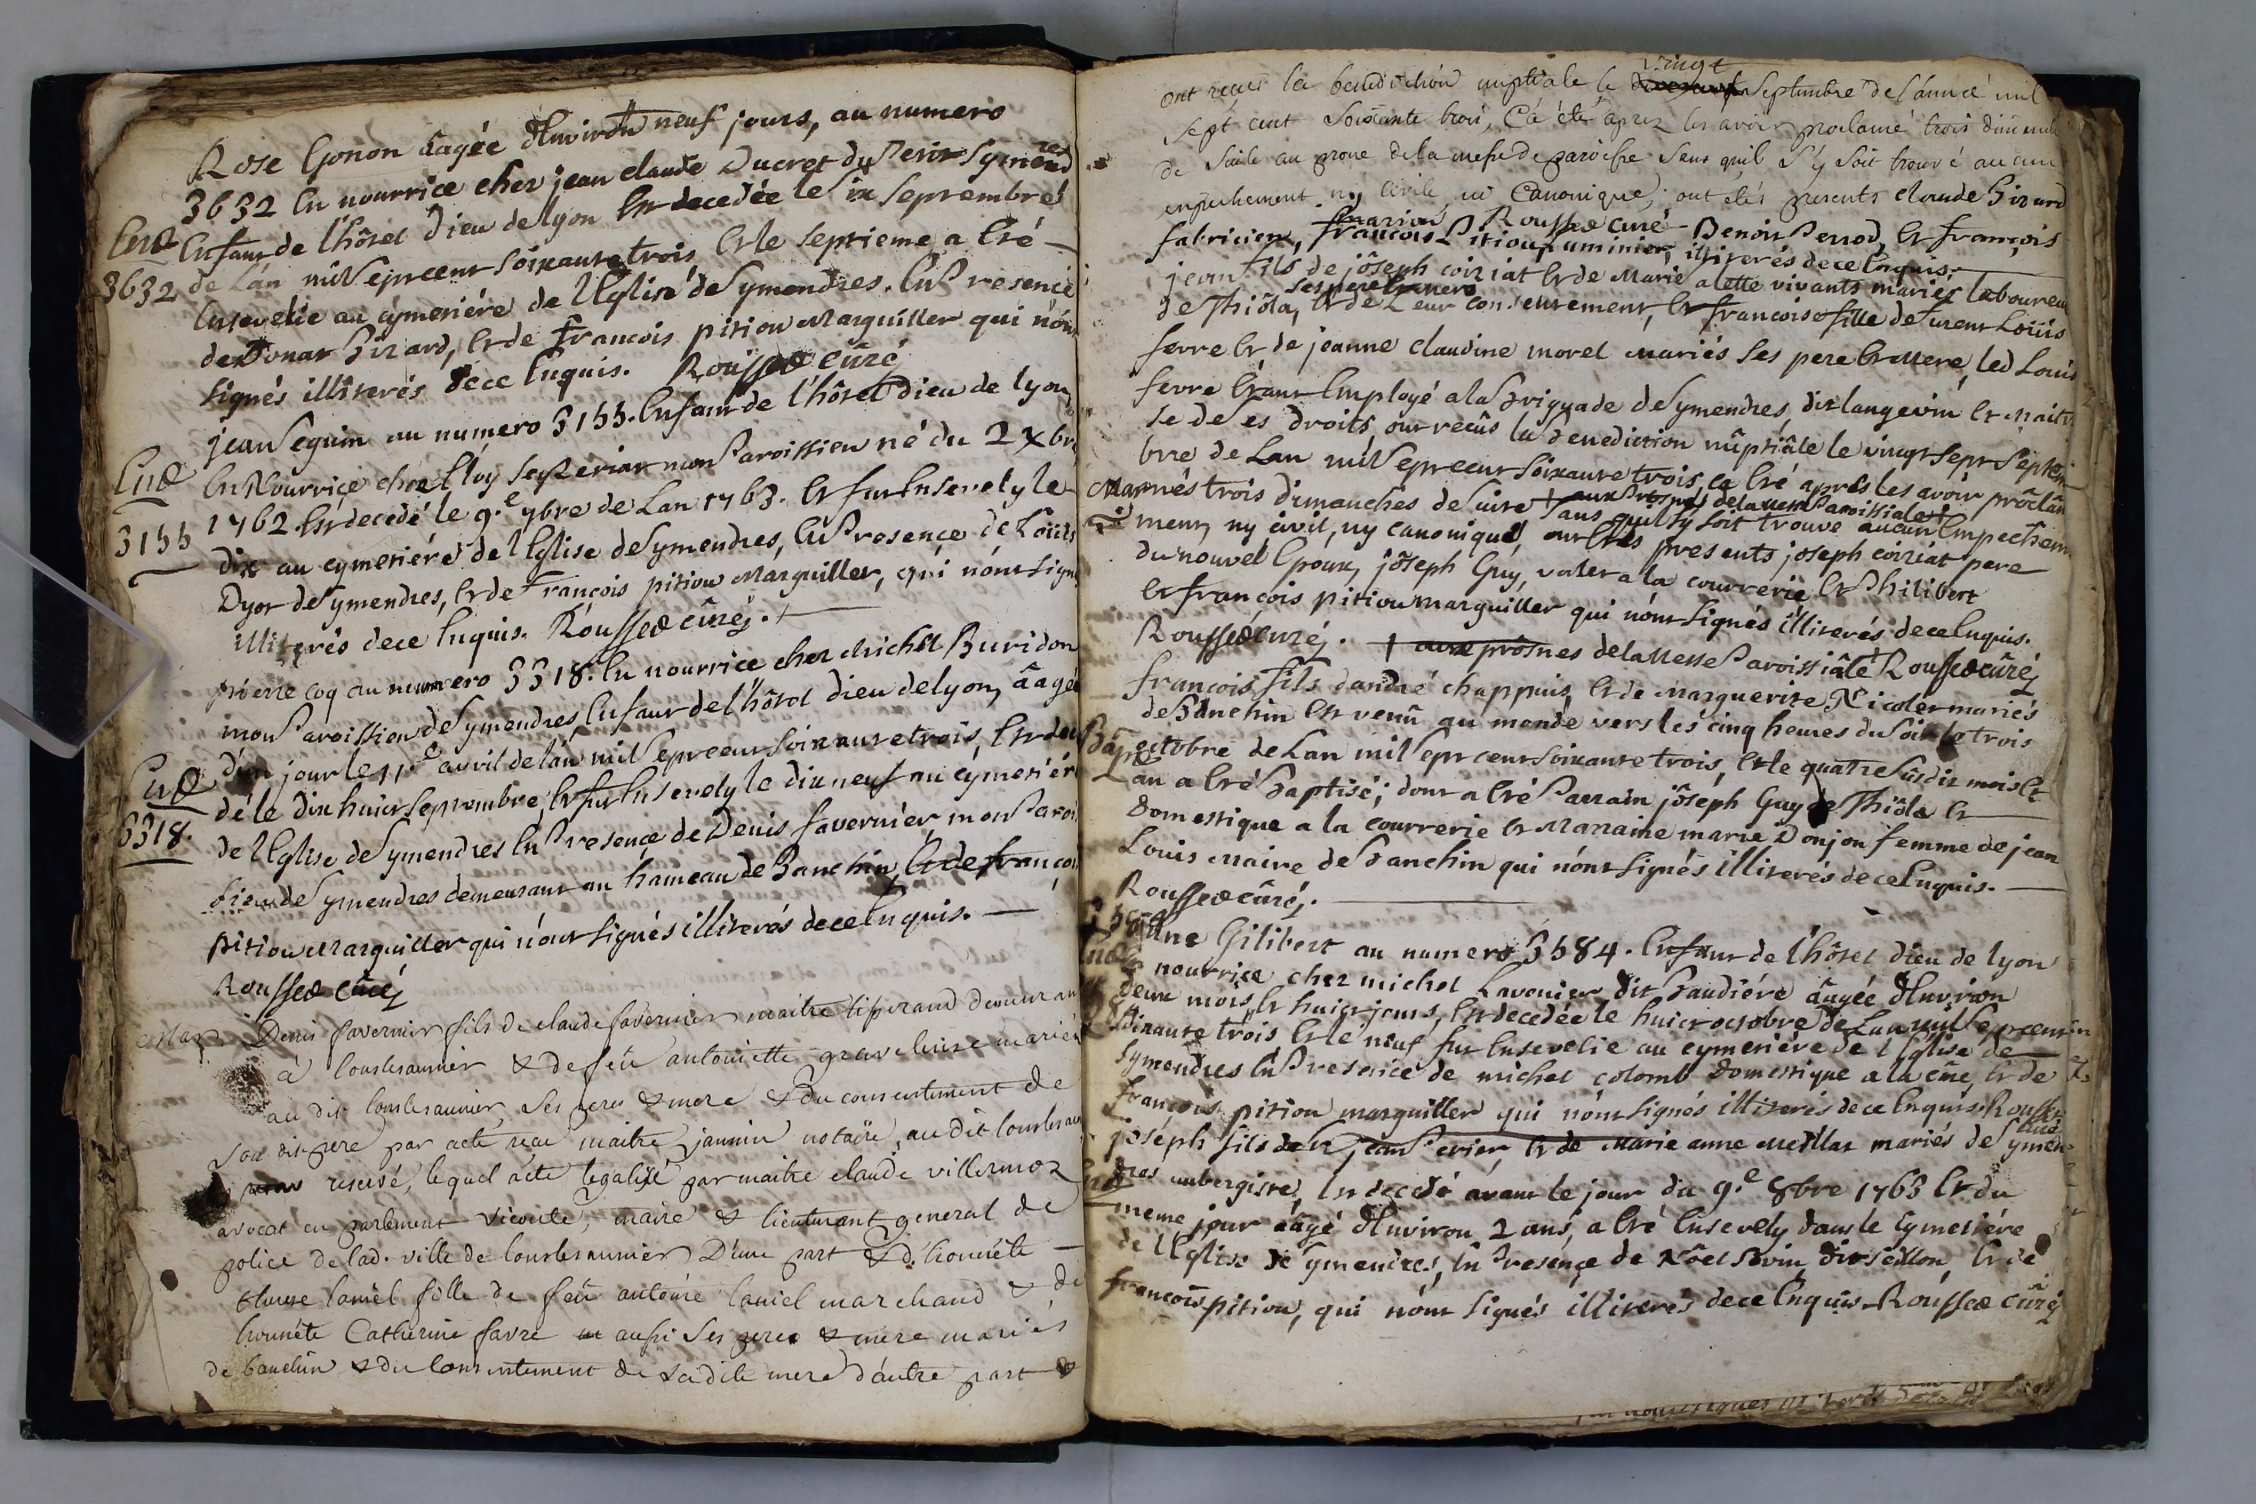 Rose Gonon âagée d'Environ neuf jours, au numero
3632 En nourrice chez jean claude Ducret du Petit Symendre
Ent
Enfant de l'hôtel Dieu de lyon Est decedée le six septembre
3632
de L'an mil Sept cent soixante trois Et le septieme a Eté
Ensevelie au cymetiére de l'Eglise de Symendres. En Presence
de Donat Girard, Et de francois pition Marguiller qui n'ont
signés illiterés de ce Enquis. Rousset curé
jean Seguin au numero 3155. Enfant de l'hôtel Dieu de lyon
Ent
En Nourrice chez Eloy mon Paroissien né du 2 xbre
3155
1762. Est decedé le 9.e 7bre de Lan 1763. Et fut Ensevely le
dix au cymetiére de l'Eglise de Symendres, En Presence de Loüis
Dyot de Symendres, Et de François pition Marguiller, qui n'ont signé
illiterés de ce Enquis. Rousset curé.
pierre coq au numero 3318. En nourrice chez Michel Buridon
mon Paroissien de Symendres Enfant de l'hôtel Dieu de lyon, âagé
d'un jour le 11.e avril de l'an mil Sept cent soixante trois, Est dece
Ent
dé le dix huict septembre Et fut Ensevely le dix neuf au cymetiére
3318.
de l'Eglise de Symendres En Presence de Denis favernier mon Parois
sien de Symendres demeurant au hameau de Banchin, Et de françois
pition Marguiller qui n'ont signés illiterés de ce Enquis.
Rousset curé
Mar
Denis favernier fils de claude favernier maitre tisserand demeurant
à Lonslesaunier & de feüe antoinette mariés
au dit Lonslesaunier, ses pere & mere & du consentement de
son dit pere par acte reçu maitre jannin notaire au dit Lonslesaunier
reservé, lequel acte legalisé par maitre claude villermoz
avocat en parlement vicomte, maire & lieutenant general de
police de lad. ville de Lonslesaunier D'une part & d'honnéte
therese laniel fille de feü antoine laniel marchand & de
honnéte Catherine favre aussi ses pere & mere mariés
de banchin & du Consentement de sa dite mere d'autre part &
ont reçus la benediction nuptiale le vingt Septembre de l'année mil
sept cent soixante trois, Ca été aprez les avoir proclamé trois dimanche
de suite au prone de la messe de paroisse sans quil s'y soit trouvé aucun
empechement ny civile ny Canonique, ont étés presents claude Girard
fabricien, francois Pition Rousset curé Benoit Perrod, Et françois
illiterés de ce Enquis.
jean fils de jôseph coiriat Et de Marie alette vivants mariés laboureur
ses pere Et mere
de Thiôla, Et de Leur consentement, Et francoise fille de sieur Loüis
ferre Et de jeanne claudine morel Mariés ses pere Et Mere, led Louis
ferre Etant Employé a la Brigade de Symendres, dit langevin Et Maitre
se de ses droits, ont reçûs la Benediction nûptiâle le vingt sept Septem
bre de Lan mil Sept cent soixante trois, ca Eté aprés les avoir prôclâ
Mar
més trois dimanches de suite sans quil sy soit trouvé aucun Empeche
aux Prosnes de la messe Paroissiale
ment, ny civil, ny canonique, ont Etés presents joseph coiriat pere
du nouvel Epoux, jôseph Guy, valet a la courrerie Et Philibert
Et francois pition Marguiller qui n'ont signés illiterés de ce Enquis.
Rousset curé. aux prôsnes de la Messe Paroissiâle Rousset cûré
francois fils d'andré chappuis, Et de Marguerite Nicolet mariés
de Banchin Est venû au monde vers les cinq heures du Soir le trois
Bap
octobre de Lan mil Sept cent soixante trois, Et le quatre susdit mois Et
an a Eté Baptisé; dont a Eté Parrain jôséph Guy de Thiôla Et
domestique a la courrerie Et Marraine marie Donjon femme de jean
Louis Maire de Banchin qui n'ont signés illiterés de ce Enquis.
Rousset curé.
Gilibert au numero 3584. Enfant de l'hôtel Dieu de lyon
Ent
nourrice chez michel Lavenier dit Baudiére âagée d'Environ
deux mois Et huict jours, Est decedée le huict octobre de Lan mil Sept cent
soixante trois Et le neuf fut Ensevelie au cymetiére de l'Eglise de
Symendres En Presence de michel colomb domestique a la cûre, Et de
françois pition marguiller qui n'ont signés illiterés de ce Enquis. Rousset
curé
joséph fils de Sr jean Perier, Et de Marie anne Meillat mariés de Symen
Ent
dres aubergiste, Est decedé avant le jour du 9.e 8bre 1763 Et du
meme jour âagé d'Environ 2 ans, a Eté Ensevely dans le Cymetiére
de l'Eglise de Symendres, En Presence de Nôel dit Seillon, Et de
francois pition, qui n'ont signés illiterés de ce Enquis. Rousset curé